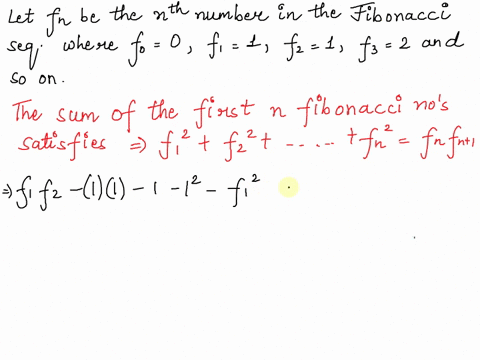 Let fn be the nth number in the Fibonacci
seq. where f₀ = 0, f₁ = 1, f₂ = 1, f₃ = 2 and
so on.
The sum of the first n fibonacci no's
satisfies ⇒ f₁² + f₂² + ..... + fn² = fn fn+1
⇒ f₁ f₂ - (1)(1) - 1 - 1² - f₁²